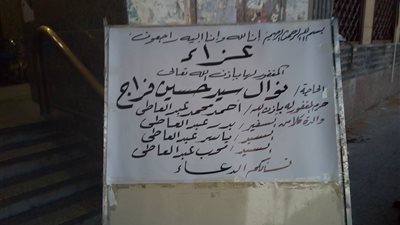 بسم الله الرحمن الرحيم إنا لله وإنا إليه راجعون
عزاء
المغفور لها بإذن الله تعالى
الحاجة / نوال سيد حسين فراج
حرم المغفور له بإذن الله / أحمد محمد عبد العاطى
والدة كلا من السفير / بدر عبد العاطى
السيد / ياسر عبد العاطى
السيد / محب عبد العاطى
نسألكم الدعاء